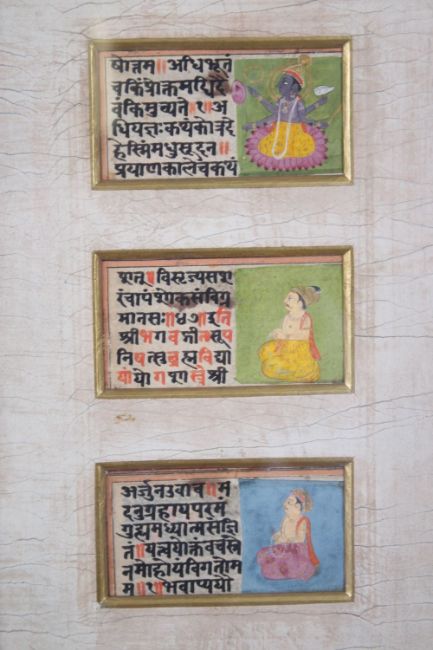 षोत्तम॥अधिभूतं
चकिंप्रोक्तमधिदै
वंकिमुच्यते॥१॥अ
धियज्ञःकथंकोत्रदे
हेस्मिंमधुसूदन॥
प्रयाणकालेचकथं
शत्॥विसृज्यसश
रंचापंशोकसंविग्न
मानसः॥४७॥इति
श्रीभगवद्गीतासूप
निषत्सुब्रह्मविद्या
यांयोगशास्त्रेश्री
अर्जुनउवाच॥म
दनुग्रहायपरमं
गुह्यमध्यात्मसंज्ञि
तं॥यत्वयोक्तंवचस्ते
नमोहोयंविगतोम
म॥१॥भवाप्ययौ